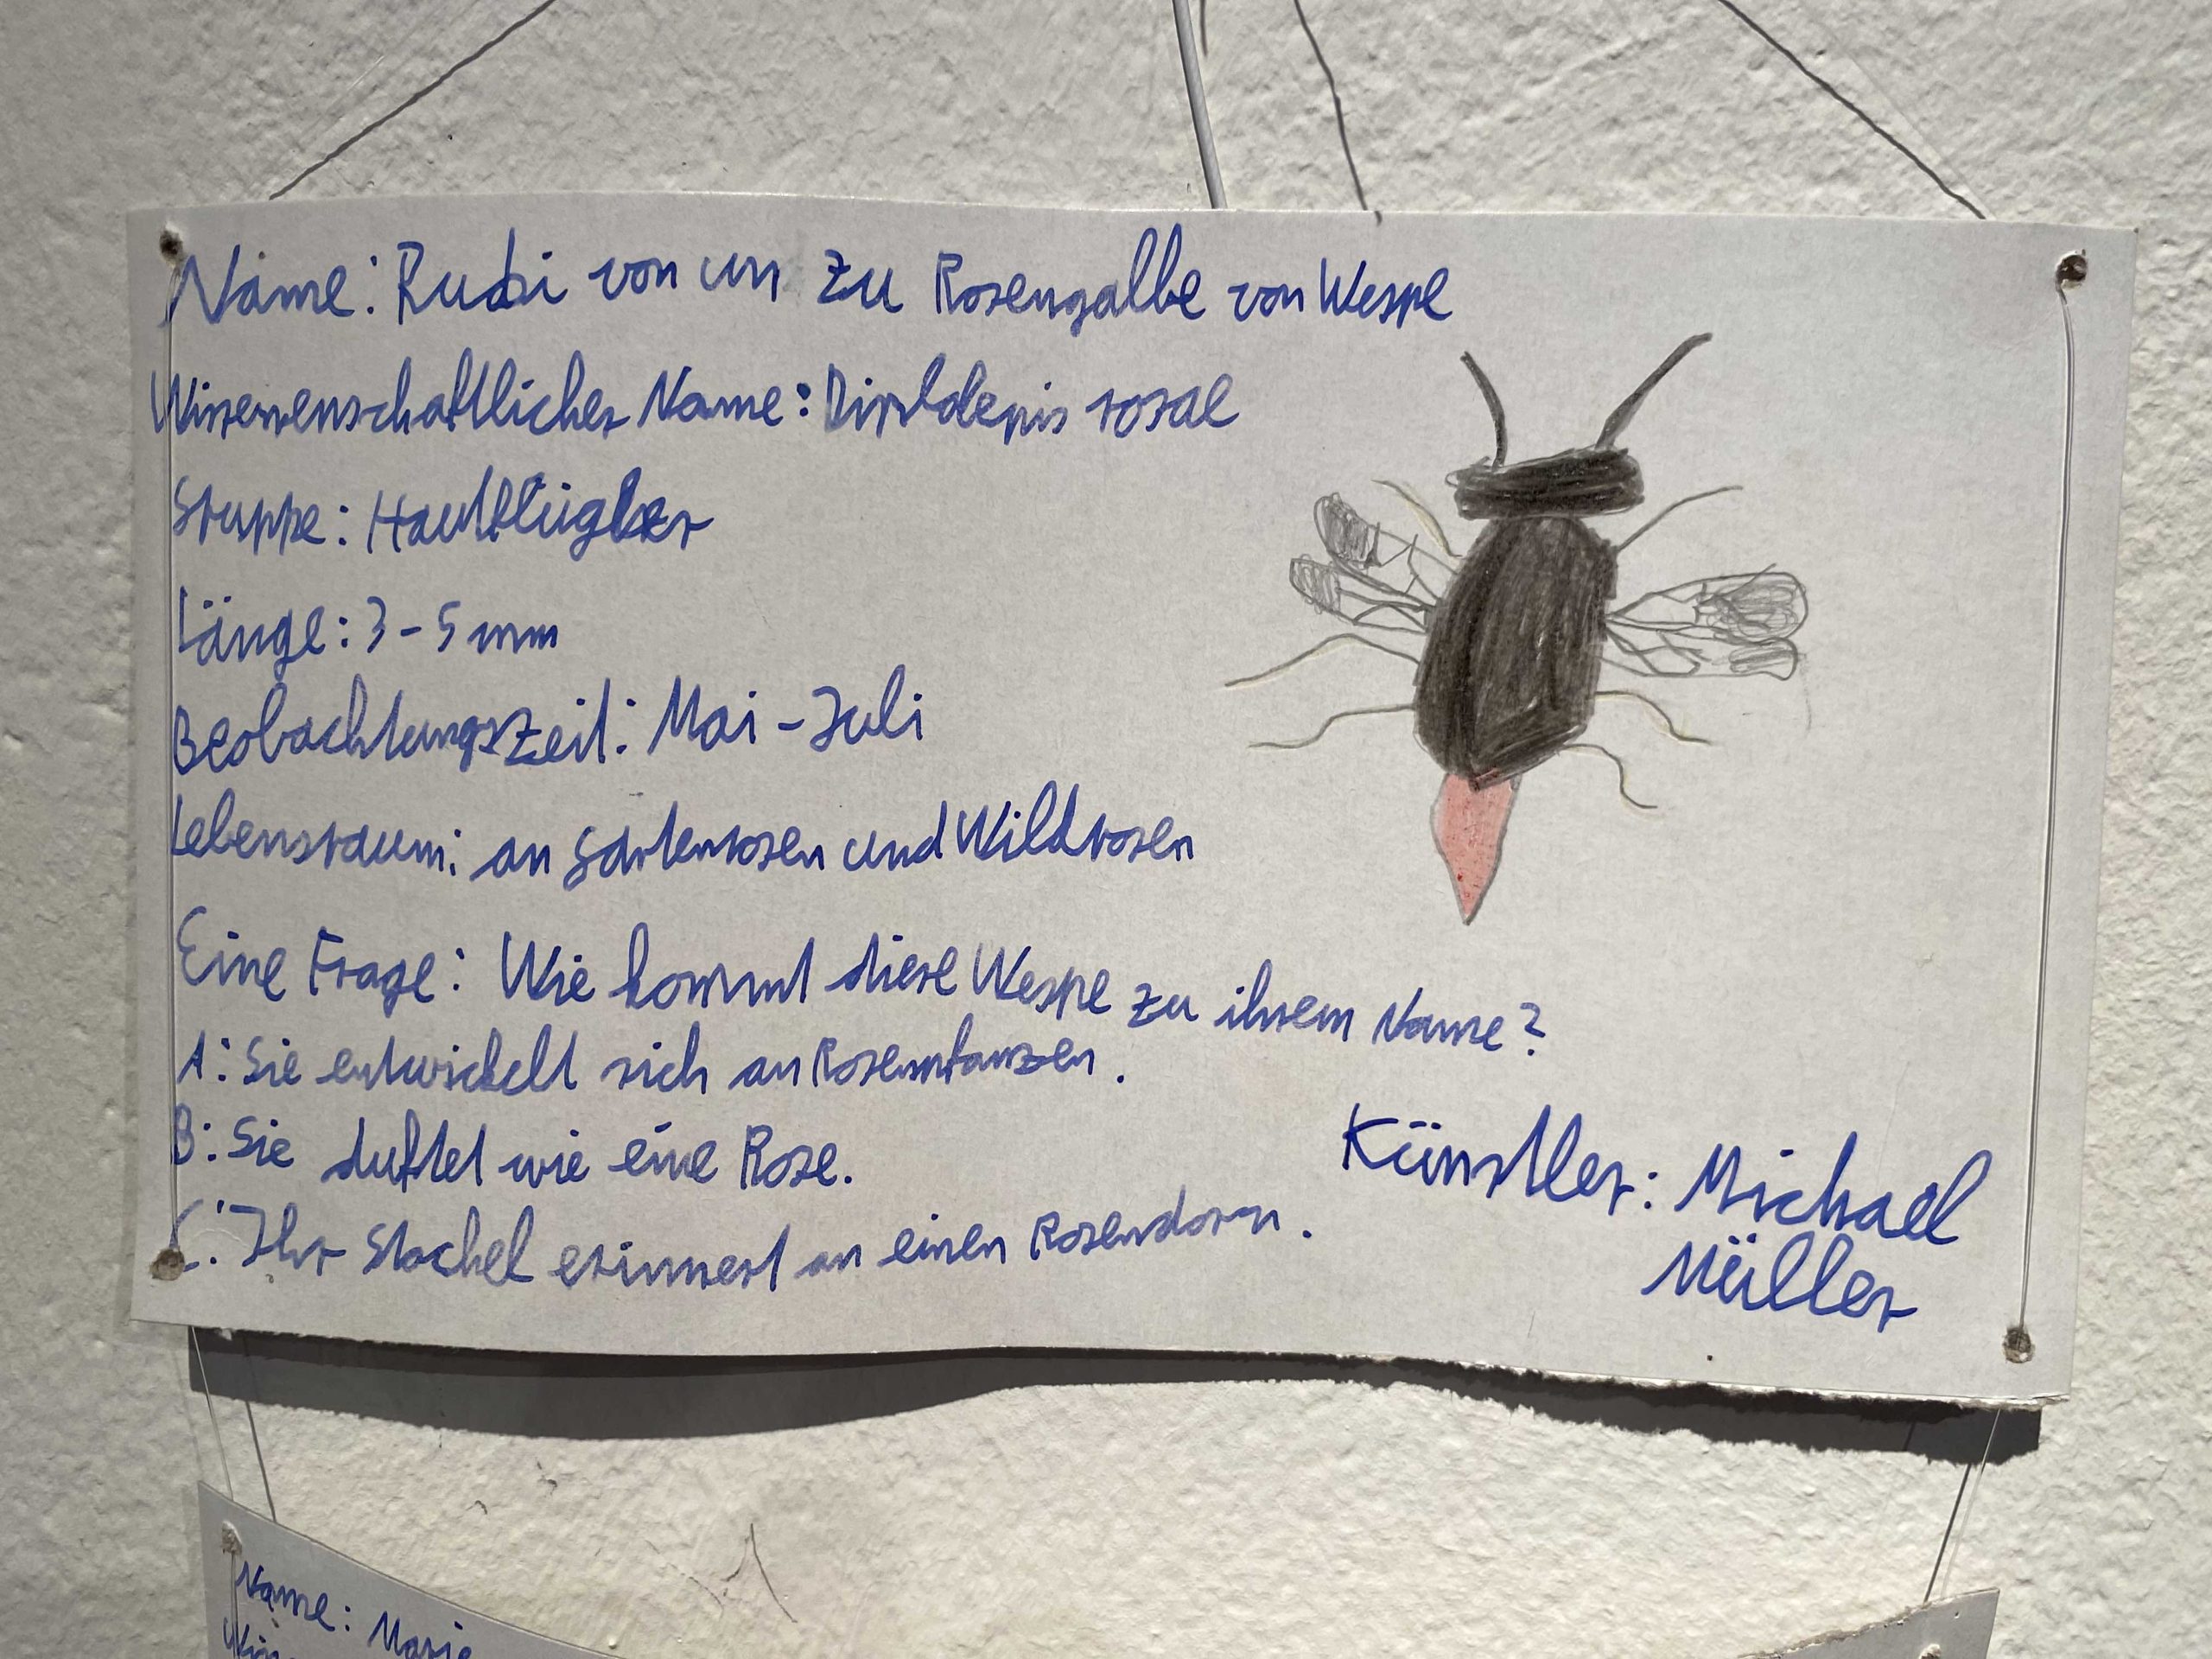 Name: Rudi von un zu Rosengalbe von Wespe
Wissenschaftlicher Name: Diplolepis rosae
Gruppe: Hautflügler
Länge: 3-5 mm
Beobachtungszeit: Mai-Juli
Lebensraum: an Gartenrosen und Wildrosen
Eine Frage: Wie kommt diese Wespe zu ihrem Name?
A: Sie entwickelt sich an
B: Sie duftet wie eine Rose.
C: Ihr Stachel erinnert an einen Rosendorn.
Künstler: Michael
Müller
Name: Marie